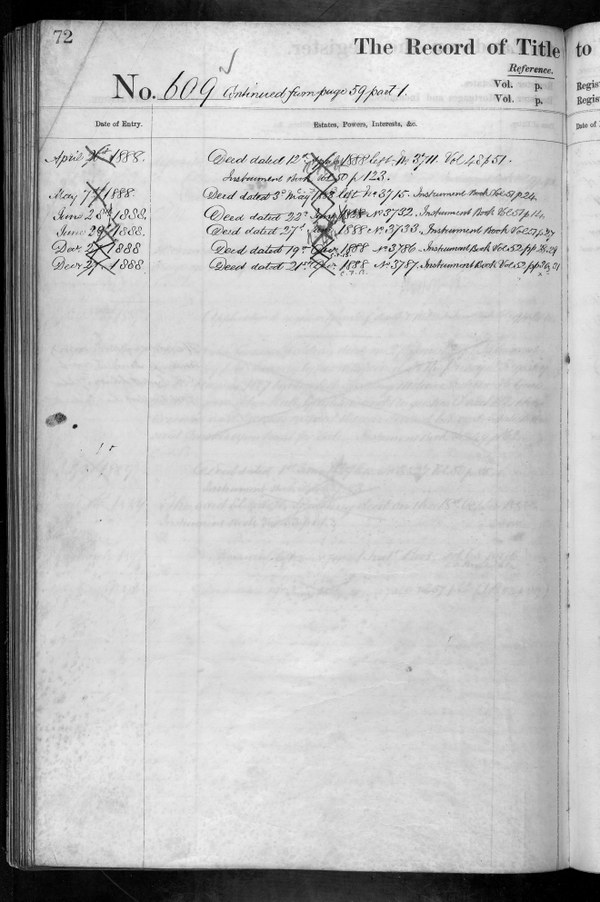 72
The Record of Title to
Reference.
No. 609 Continued from page 59 part 1.
Vol. p.
Vol. p.
Regis
Regis
Date of Entry.
Estates, Powers, Interests, &c.
Date of
April 1888. Deed dated 12th April 1888 No 3711. Vol 48 p 51.
Instrument Book vol 50 p 123.
May 7th 1888 Deed dated 3d May 1888 No 3715. Instrument Book Vol 51 p 24.
June 28th 1888. Deed dated 22d June 1888 No 3732. Instrument Book Vol 51 p
June 29th 1888. Deed dated 27th 1888 No 3733. Instrument Book Vol 52 p 27
Decr 27. 1888 Deed dated 19th Decr 1888 No 3786. Instrument Book Vol 52 pp 28. 29
Decr 27. 1888 Deed dated 21st Decr 1888 No 3787. Instrument Book Vol 52 pp 30, 31